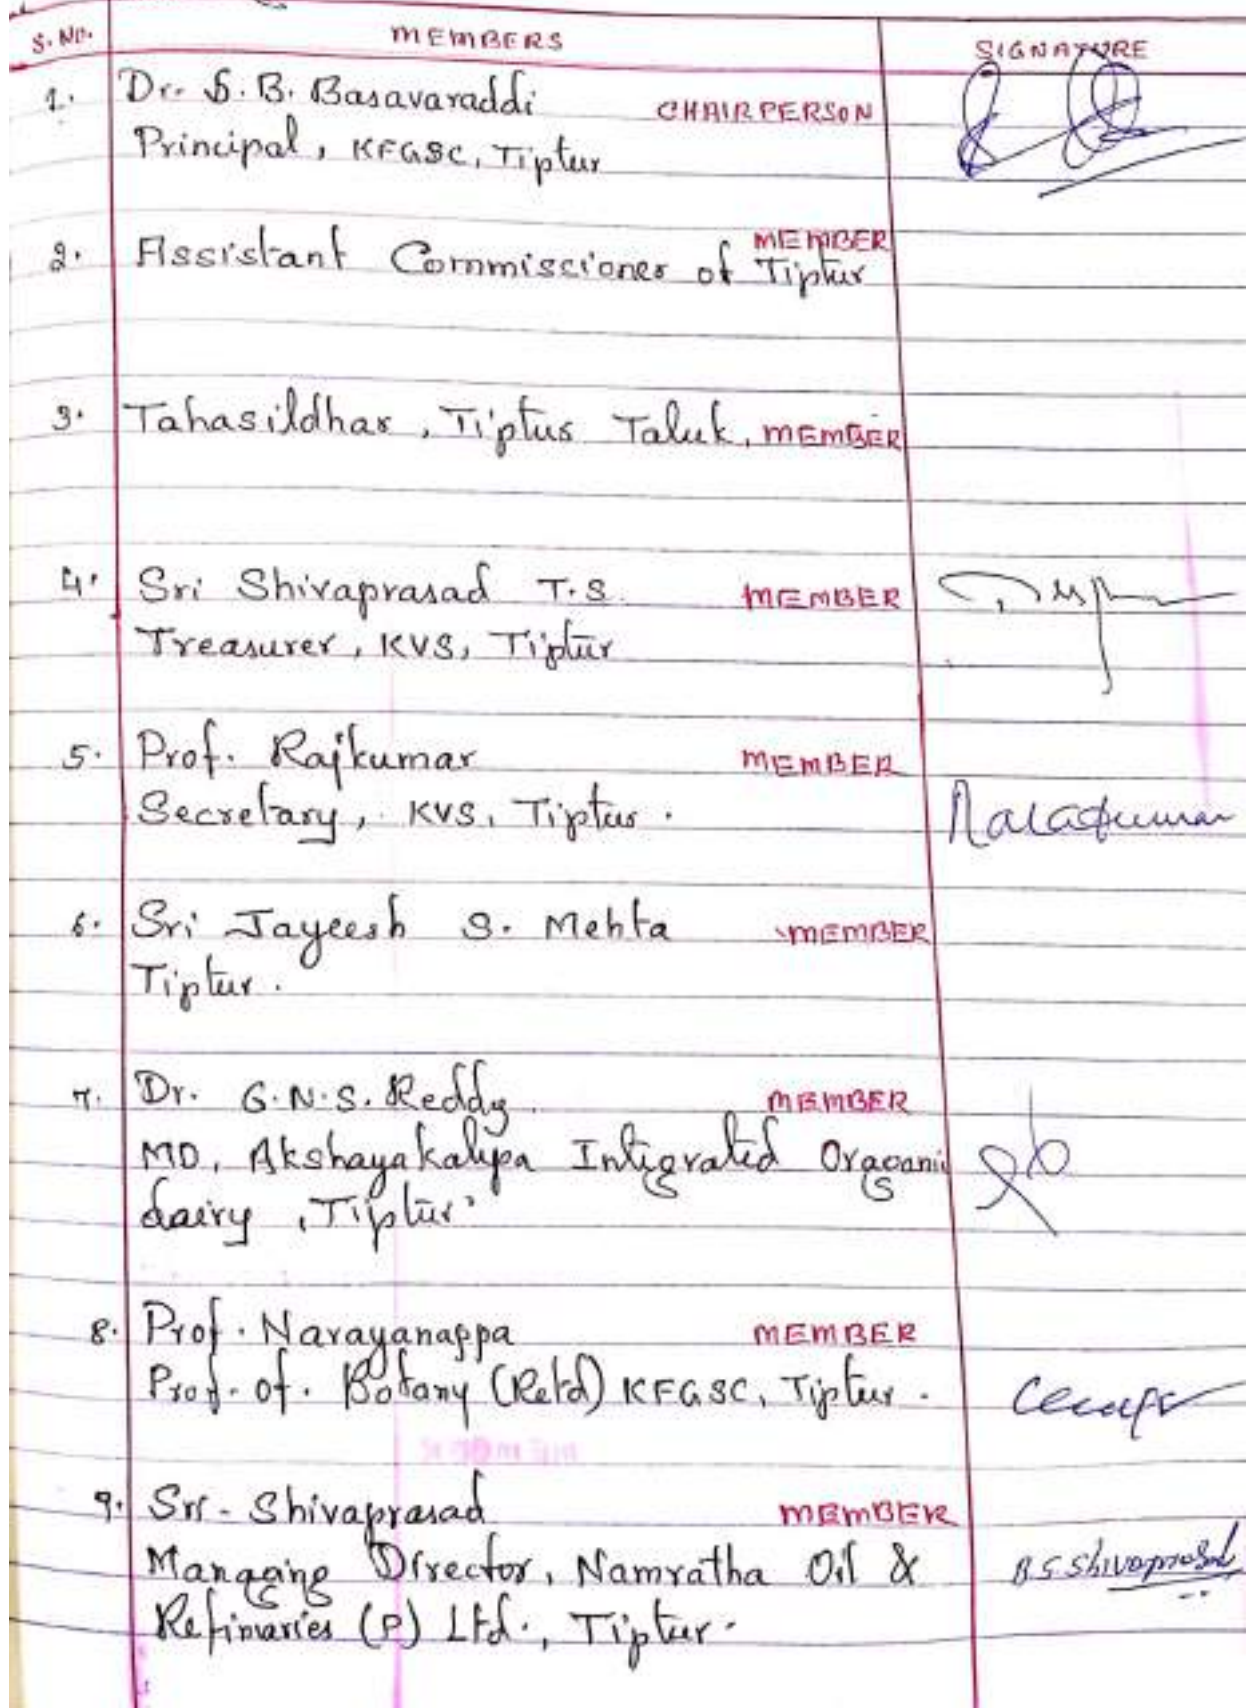 S. No. MEMBERS SIGNATURE
1. Dr. S. B. Basavaraddi CHAIRPERSON
Principal, KFGSC, Tiptur
MEMBER
2. Assistant Commissioner of Tiptur
3. Tahasildhar, Tiptur Taluk, MEMBER
4. Sri Shivaprasad T.S. MEMBER
Treasurer, KVS, Tiptur
5. Prof. Rajkumar MEMBER
Secretary, KVS, Tiptur.
6. Sri Jayeesh S. Mehta MEMBER
Tiptur.
7. Dr. G.N.S. Reddy MEMBER
MD, Akshayakalpa Intigrated Oragani
dairy, Tiptur.
8. Prof. Narayanappa MEMBER
Prof. of. Botany (Retd) KFGSC, Tiptur.
9. Sri- Shivaprasad MEMBER
Managing Director, Namratha Oil & B S Shivaprasad
Refinaries (P) Ltd., Tiptur.